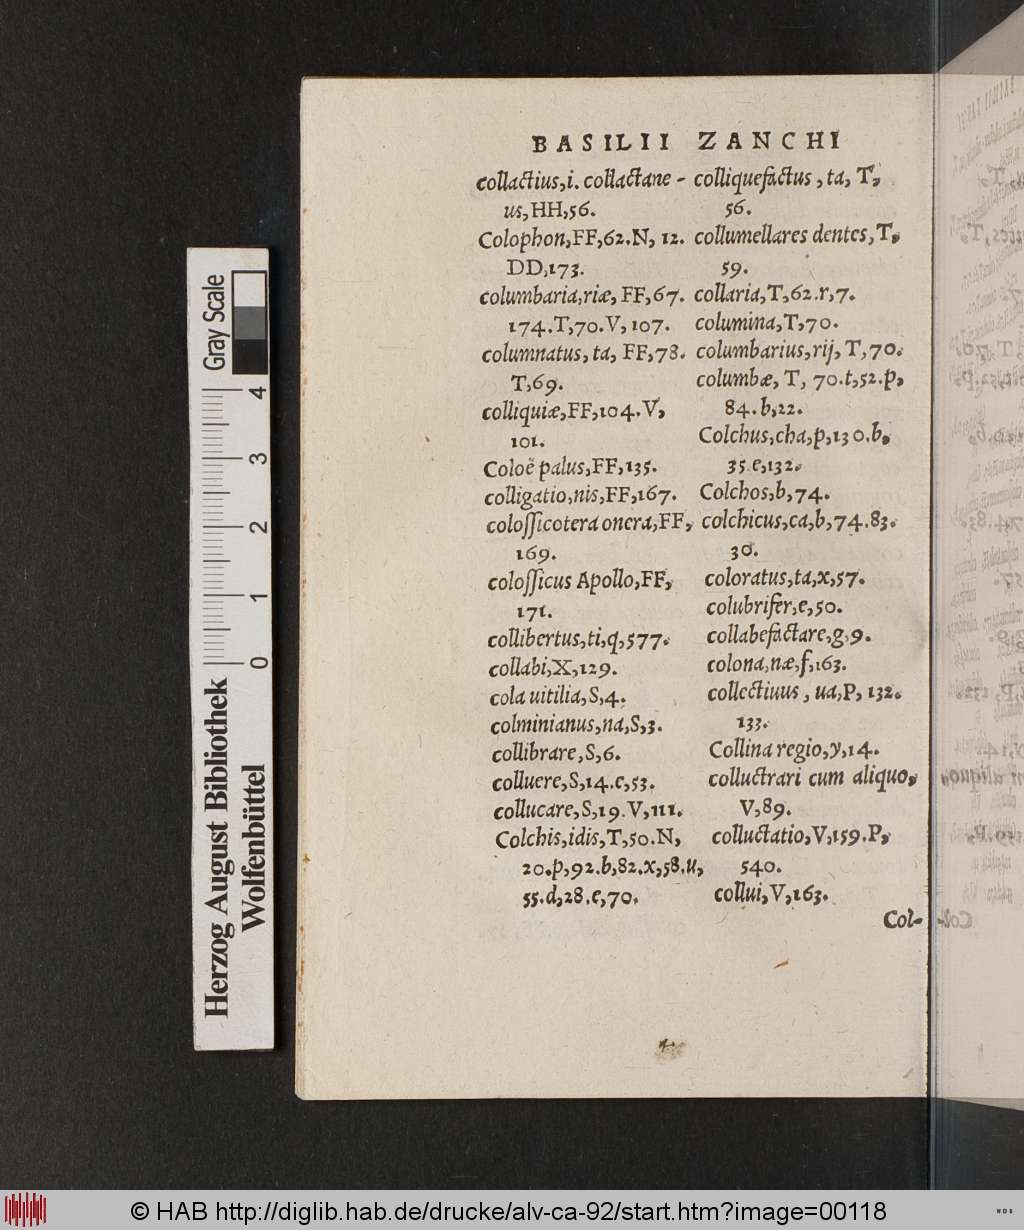 BASILII ZANCHI
collactius,i. collactane-
us,HH,56.
Colophon,FF,62.N, 12.
DD,173.
columbaria,riæ, FF,67.
174.T,70.V, 107.
columnatus, ta, FF,78.
T,69.
colliquiæ,FF,104.V,
101.
Coloë palus,FF,135.
colligatio,nis,FF,167.
coloſſicotera onera,FF,
169.
coloſſicus Apollo,FF,
171.
collibertus,ti,q,577.
collabi,X,129.
cola uitilia,S,4.
colminianus,na,S,3.
collibrare,S,6.
colluere,S,14.e,53.
collucare,S,19.V,111.
Colchis,idis,T,50.N,
20.p,92.b,82.x,58.u,
55.d,28.e,70.
colliquefactus, ta, T,
56.
collumellares dentes,T,
59.
collaria,T,62.r,7.
columina,T,70.
columbarius,rij, T,70.
columbæ, T, 70.t,52.p,
84.b,22.
Colchus,cha,p,130.b,
35.e,132.
Colchos,b,74.
colchicus,ca,b,74.83.
30.
coloratus,ta,x,57.
colubrifer,e,50.
collabefactare,g,9.
colona,næ,f,163.
collectiuus, ua,P, 132.
133.
Collina regio,y,14.
colluctrari cum aliquo,
V,89.
colluctatio,V,159.P,
540.
collui,V,163.
Col-
Gray Scale
0 1 2 3 4
Herzog August Bibliothek
Wolfenbüttel
© HAB http://diglib.hab.de/drucke/alv-ca-92/start.htm?image=00118